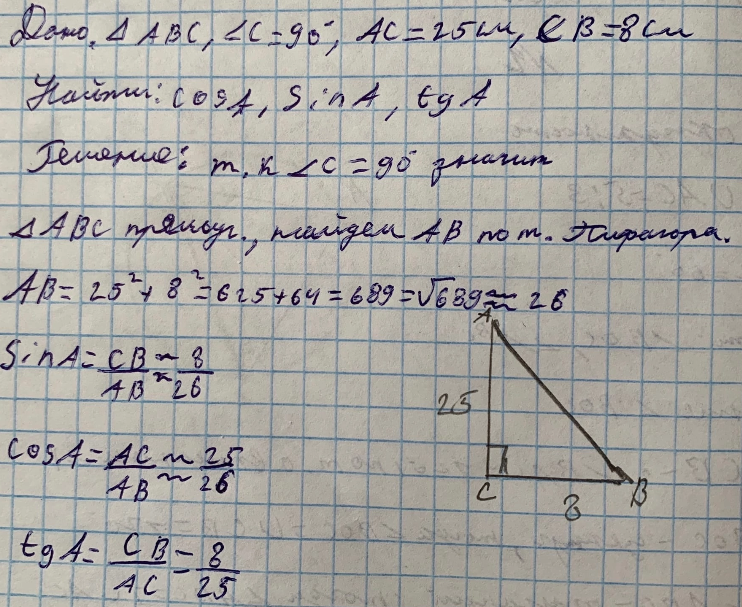 Дано, △ABC, ∠C=90°, AC=25см, CB=8см
Найти: cosA, SinA, tgA
Решение: т.к ∠C=90° значит
△ABC прямоуг., найдем AB по т. Пифагора.
AB= 25²+8²=625+64=689=√689≈26
SinA= CB/AB ≈ 8/26
CosA= AC/AB ≈ 25/26
tgA= CB/AC = 8/25
A
25
C
8
B